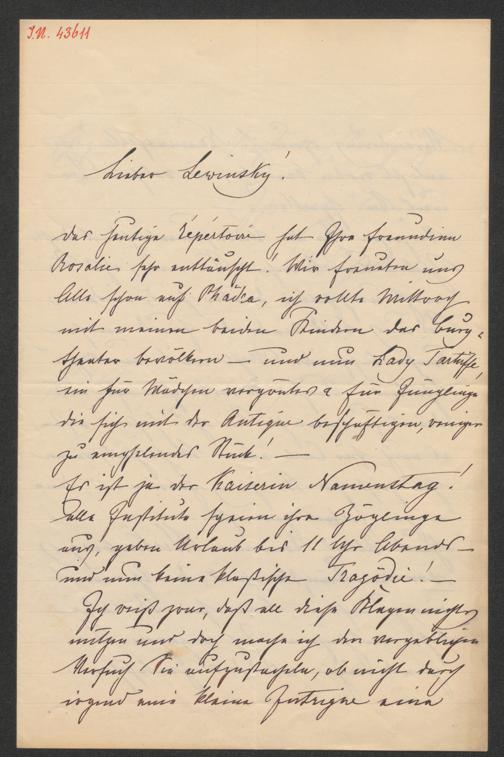 I.N. 43611
Lieber Lewinsky!
das heutige Répertoire hat Ihre Freundinn
Rosalie sehr enttäuscht! Wir freuten uns
Alle schon auf Phädra, ich wollte Mittwoch
mit meinen beiden Kindern das Burg-
theater bevölkern — und nun Lady Tartuffe,
ein für Mädchen u für Jünglinge
die sich mit der Antique beschäftigen, weniger
zu empfehlendes Stück! —
Es ist ja der Kaiserin Namenstag!
alle Institute ihre Zöglinge
aus, geben Urlaub bis 11 Uhr Abends —
und nun keine klassische Tragödie! —
Ich weiß zwar, daß all diese Klagen nichts
nutzen und doch mache ich den vergeblichen
Versuch Sie aufzustacheln, ob nicht durch
irgend eine kleine Intrigue eine